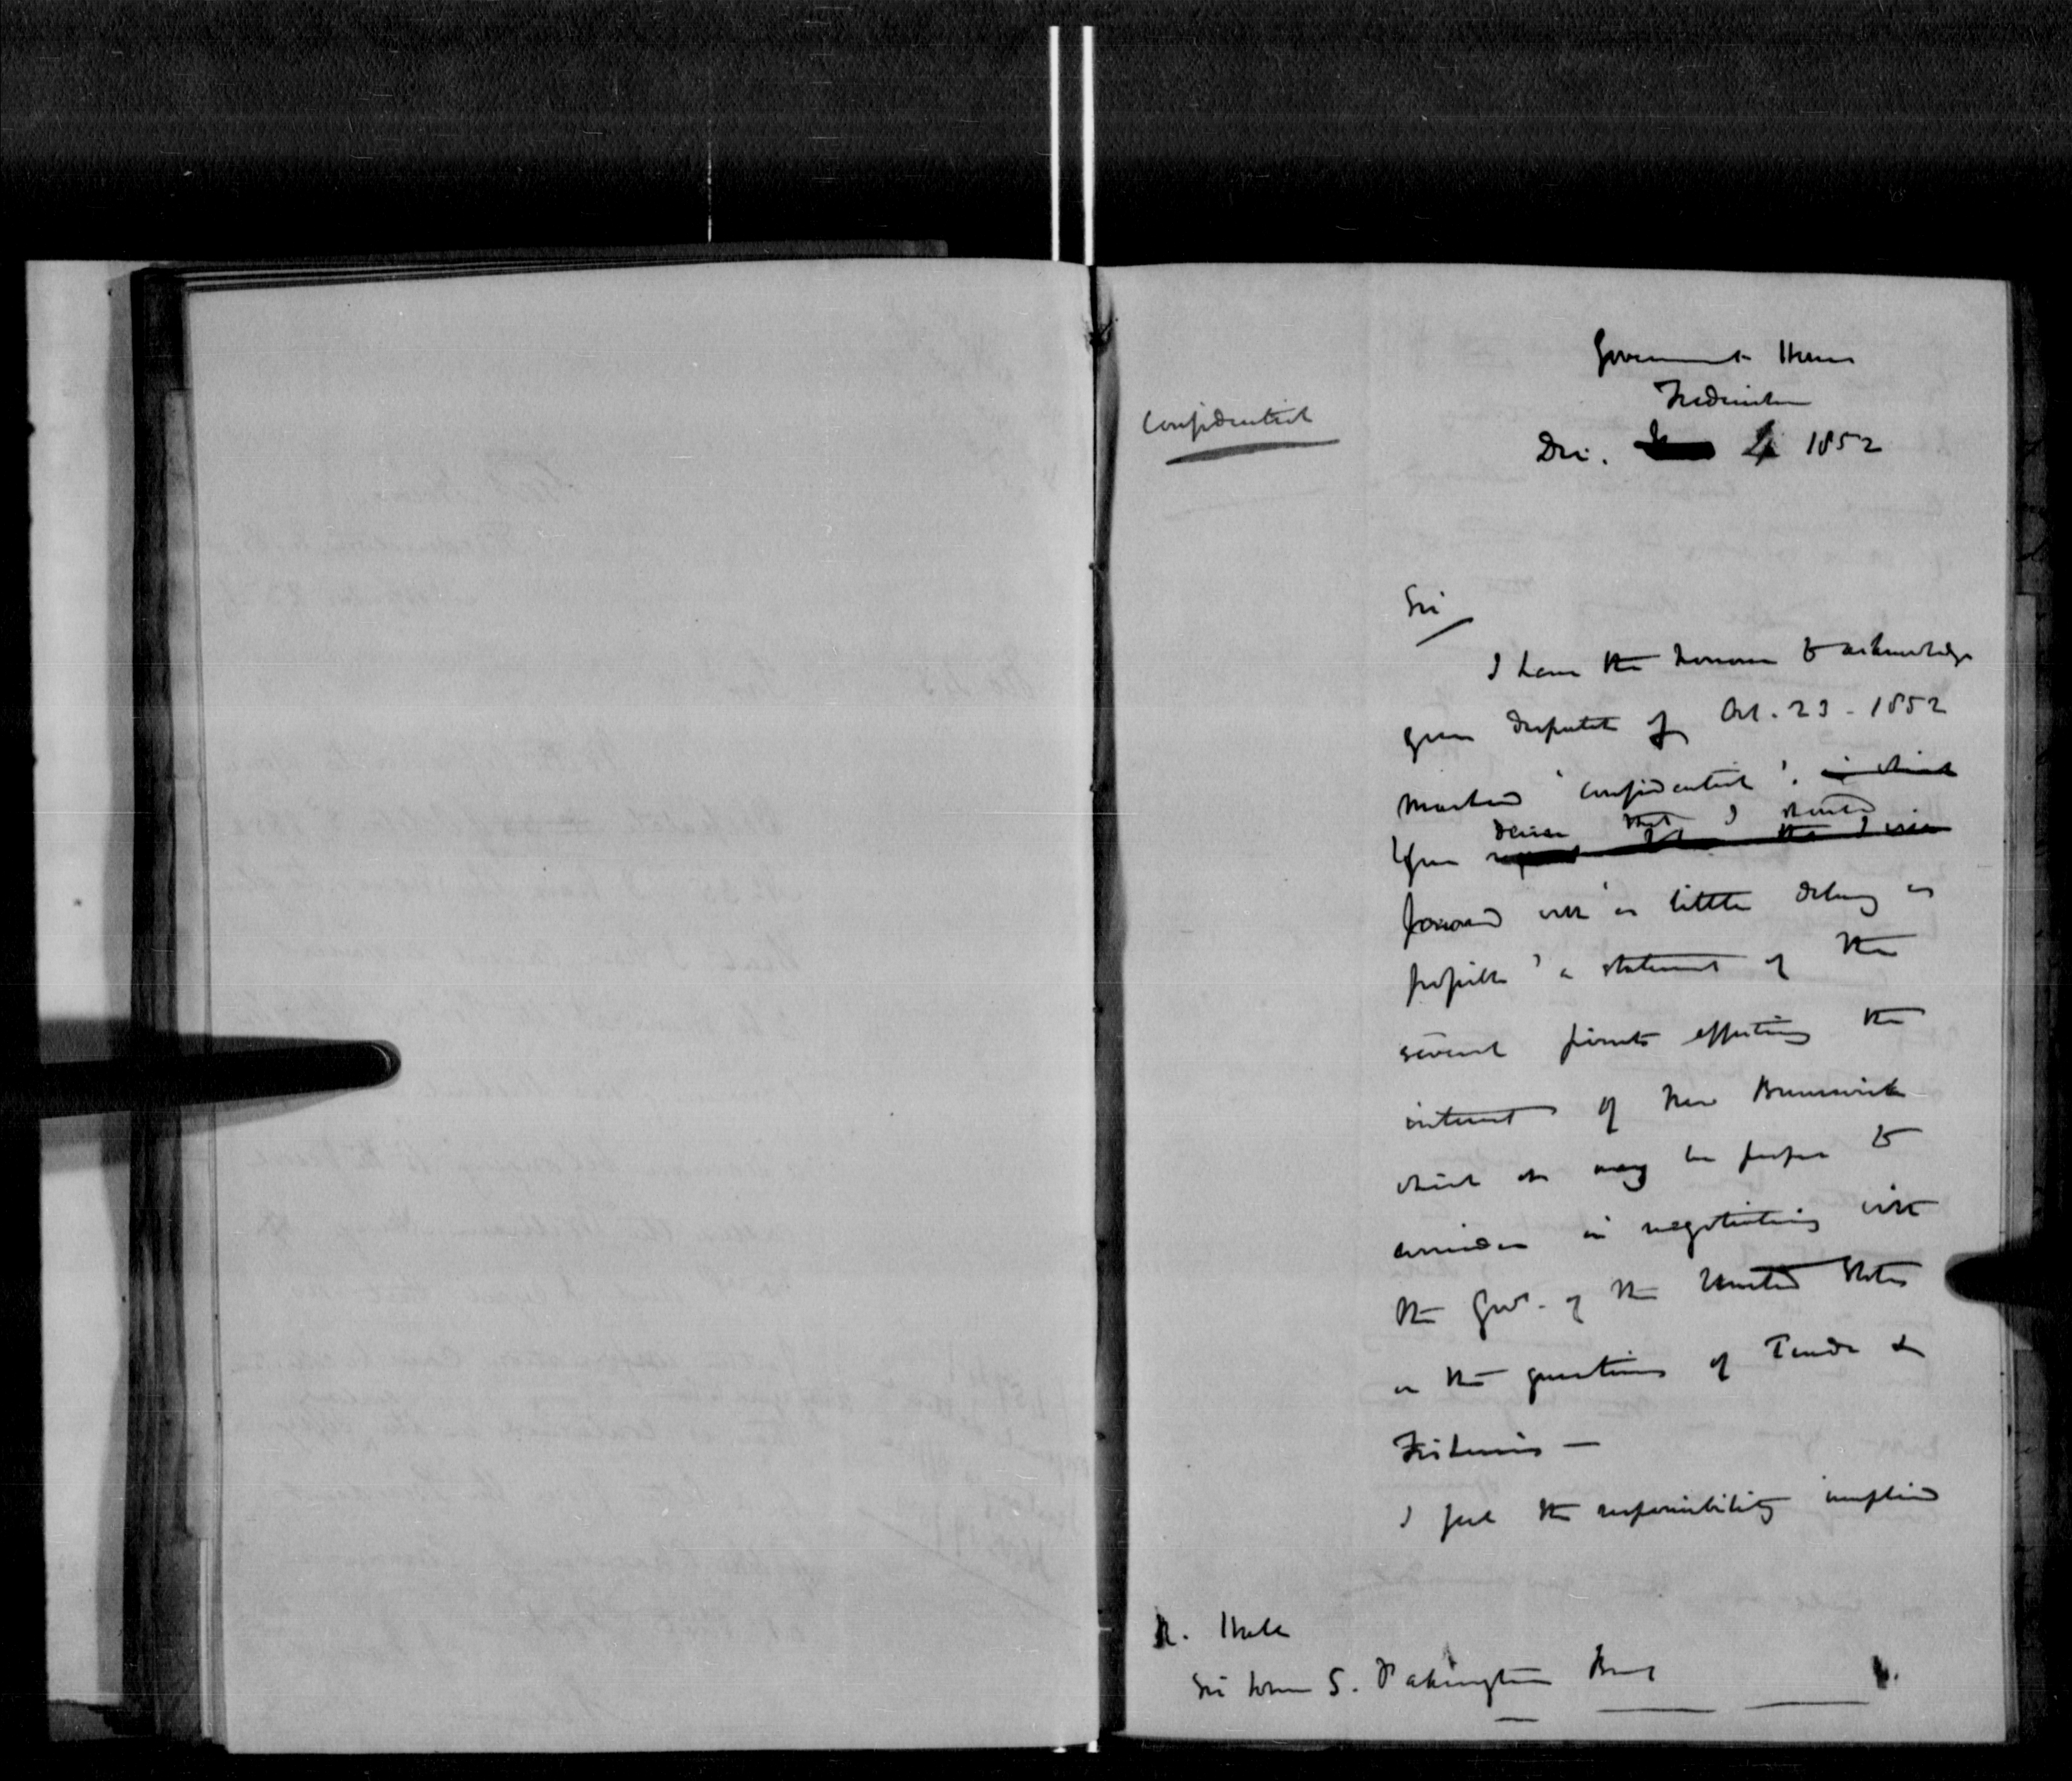 Government House
Fredericton
Confidential
Dec. 4 1852
Sir
I have the honour to acknowledge
your despatch of Oct. 23 - 1852
marked 'confidential'. in which
You desire that I should
forward with as little delay as
possible a statement of the
several points affecting the
interest of New Brunswick
which it may be proper to
consider in negotiating with
the Govt. of the United States
on the questions of Trade &
Fisheries —
I feel the responsibility implied
Sir John S. Pakington Bart